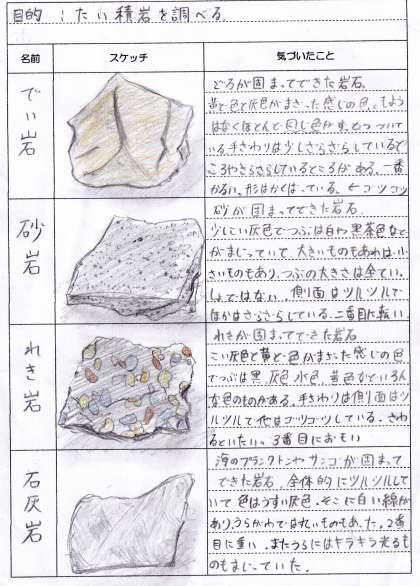 目的 : たい積岩を調べる.
名前 スケッチ 気づいたこと
でい岩
どろが固まってできた岩石.
黄土色と灰色がまざった感じの色.もよう
はなくほとんど同じ色がすじつついて
いる.手ざわりは少しさらさらしているど
ころやざらざらしているところがある.一番
かるい.形はかくばっている.
砂岩
砂が固まってできた岩石.
少しこい灰色でつぶは白や黒茶色など
がまじっていて大きいものもあれば小
さいものもあり.つぶの大きさは全ていっ
しょではない.側面はツルツルで
ほかはさらさらしている.二番目に軽い.
れき岩
れきが固まってできた岩石
こい灰色と黄土色がまざった感じの色
でつぶは黒、灰色、水色、黄色などいろん
な色のものがある.手ざわりは側面はツ
ルツルで他はゴツゴツしている.さわ
るといたい。3番目におもい
石灰岩
海のプランクトンやサンゴが固まって
できた岩石.全体的にツルツルして
いて色はうすい灰色.そこに白い線が
あり、うらがわでは丸いものもあった.2番
目に重い.またうらにはキラキラ光るも
のもまじっていた.